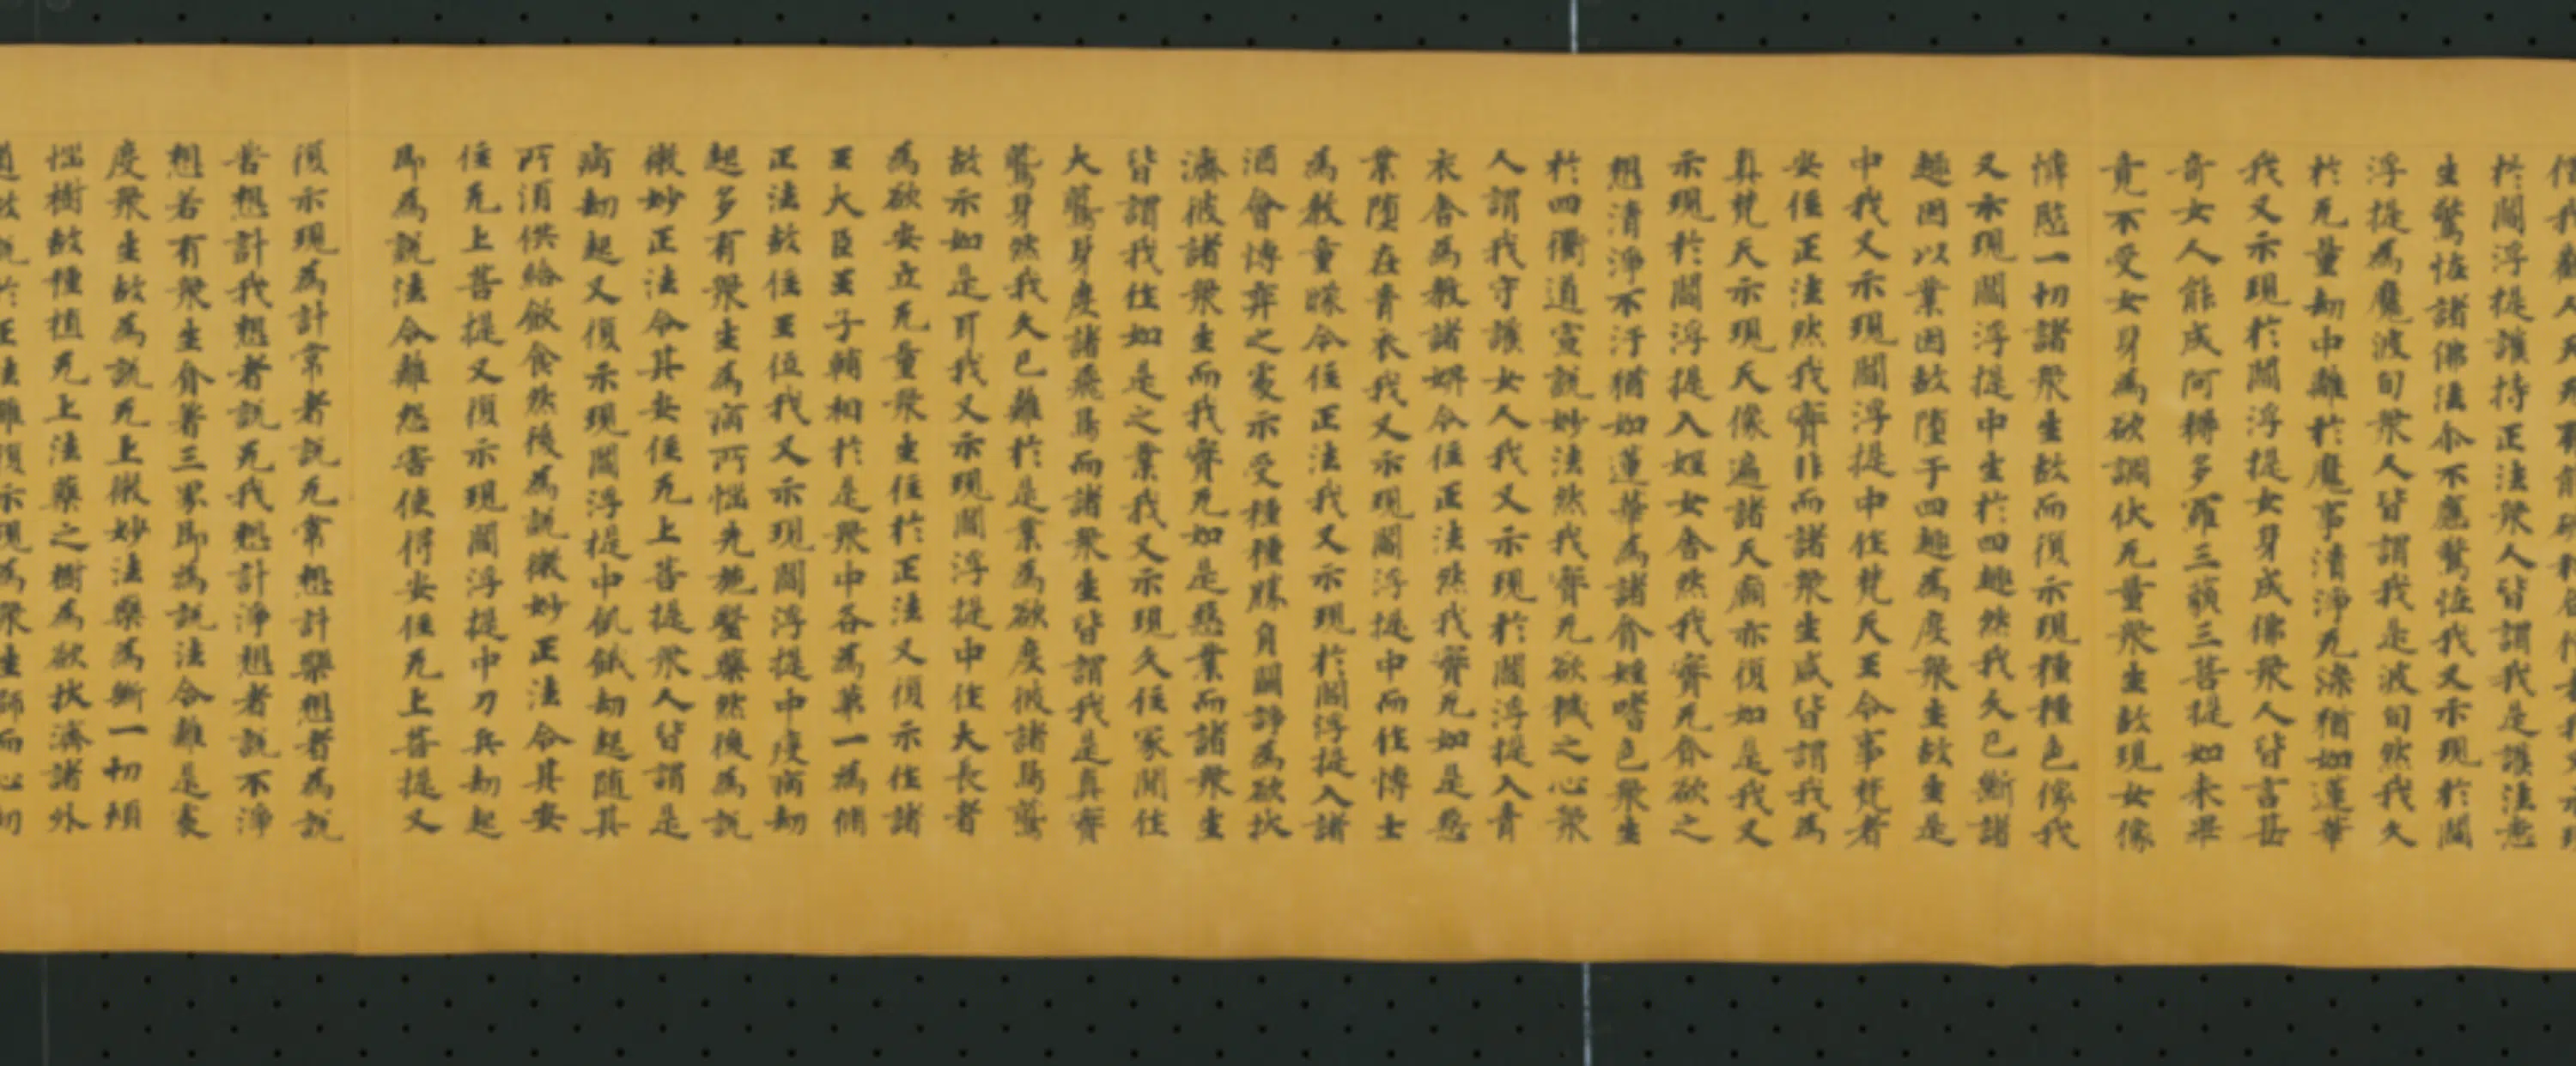 於閻浮提護持正法衆人皆謂我是護法悉
生驚恠諸佛法尒不應驚恠我又示現於閻
浮提為魔波旬衆人皆謂我是波旬然我久
於无量劫中離於魔事清淨无染猶如蓮華
我又示現於閻浮提女身成佛衆人皆言甚
奇女人能成阿耨多羅三藐三菩提如来畢
竟不受女身為欲調伏无量衆生故現女像
憐愍一切諸衆生故而復示現種種色像我
又示現閻浮提中生於四趣然我久已斷諸
趣因以業因故墮于四趣為度衆生故生是
中我又示現閻浮提中作梵天王令事梵者
安住正法然我實非而諸衆生咸皆謂我為
真梵天示現天像遍諸天廟亦復如是我又
示現於閻浮提入婬女舍然我實无貪欲之
想清淨不汙猶如蓮華為諸貪婬嗜色衆生
於四衢道宣說妙法然我實无欲穢之心衆
人謂我守護女人我又示現於閻浮提入青
衣舍為教諸婢令住正法然我實无如是惡
業墮在青衣我又示現閻浮提中而作博士
為教童矇令住正法我又示現於閻浮提入諸
酒會博弈之處示受種種勝負鬪諍為欲拔
濟彼諸衆生而我實无如是惡業而諸衆生
皆謂我作如是之業我又示現久住冢間作
大鷲身度諸飛鳥而諸衆生皆謂我是真實
鷲身然我久已離於是業為欲度彼諸鳥鷲
故示如是耳我又示現閻浮提中作大長者
為欲安立无量衆生住於正法又復示作諸
王大臣王子輔相於是衆中各為苐一為脩
正法故住王位我又示現閻浮提中疫病劫
起多有衆生為病所惱先施醫藥然後為說
微妙正法令其安住无上菩提衆人皆謂是
病劫起又復示現閻浮提中飢餓劫起随其
所須供給飲食然後為說微妙正法令其安
住无上菩提又復示現閻浮提中刀兵劫起
即為說法令離怨害使得安住无上菩提又
復示現為計常者說无常想計樂想者為說
苦想計我想者說无我想計淨想者說不淨
想若有衆生貪著三界即為說法令離是處
度衆生故為說无上微妙法藥為斷一切煩
惱樹故種植无上法藥之樹為欲拔濟諸外
道故說於正法雖復示現為衆生師而心初